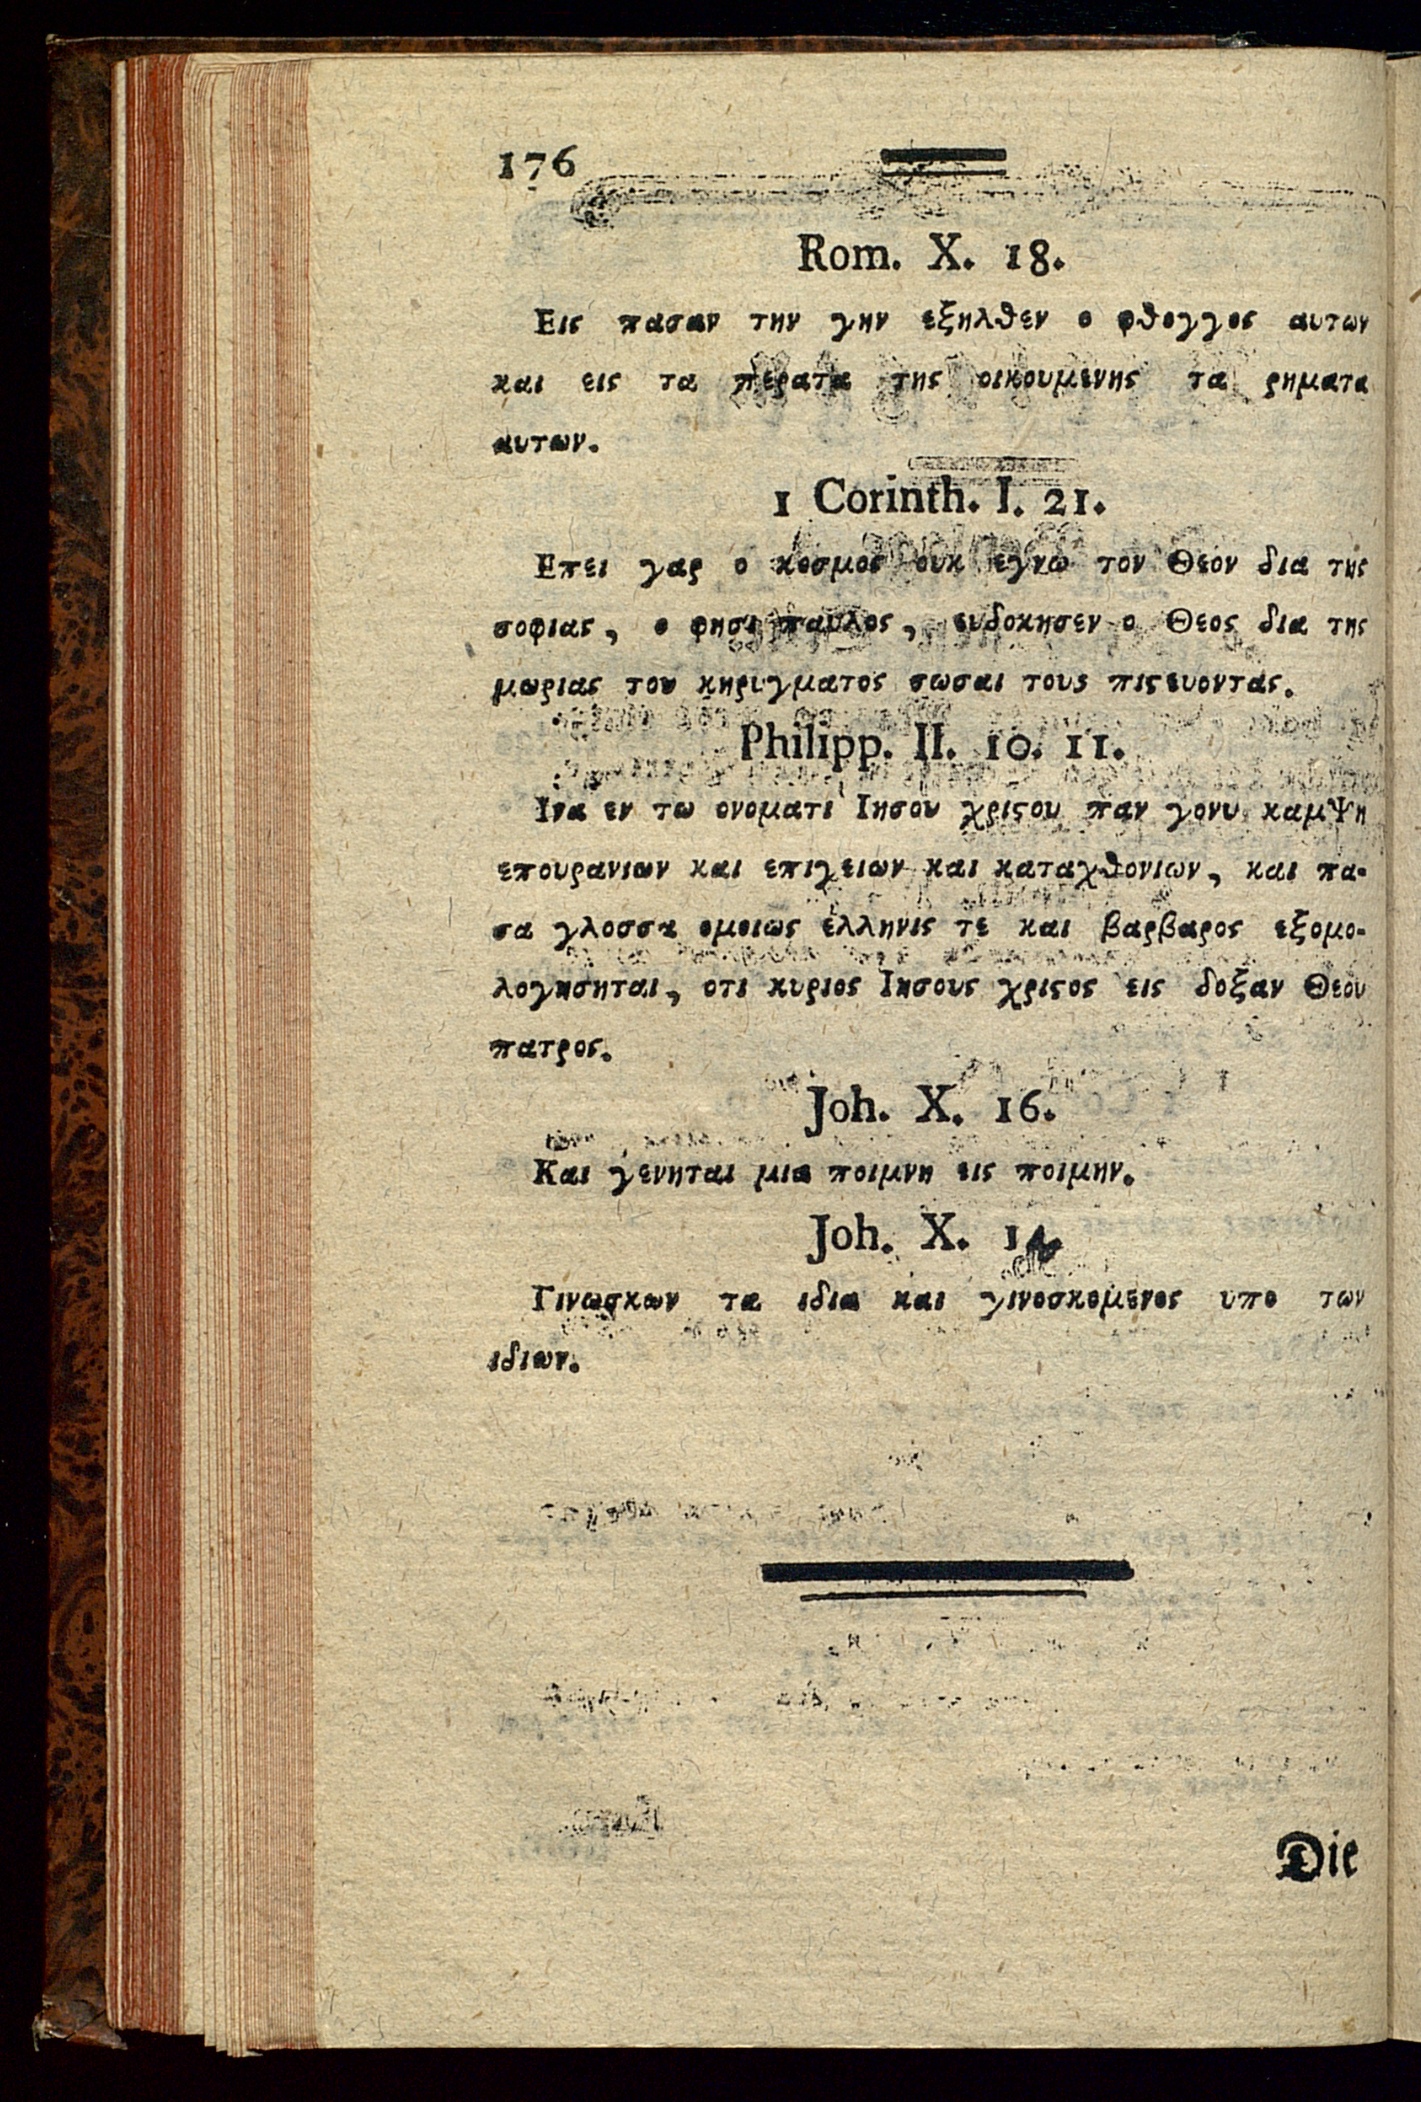 176
Rom. X. 18.
Εις πασαν την γην εξηλθεν ο φθογγος αυτων
και εις τα περατα της οικουμενης τα ρηματα
αυτων.
1 Corinth. I. 21.
Επει γαρ ο κοσμος ουκ εγνω τον Θεον δια της
σοφιας, ο φησι παυλος, ευδοκησεν ο Θεος δια της
μωριας του κηρυγματος σωσαι τους πιϛευοντας.
Philipp. II. 10. 11.
Ινα εν τω ονοματι Ιησου χριϛου παν γονυ καμΨη
επουρανιων και επιγειων και καταχθονιων, και πα-
σα γλοσσα ομοιως ελληνις τε και βαρβαρος εξομο-
λογησηται, οτι κυριος Ιησους χριϛος εις δοξαν Θεου
πατρος.
Joh. X. 16.
Και γενηται μια ποιμνη εις ποιμην.
Joh. X. 14.
Γινωσκων τα ιδια και γινοσκομενος υπο των
ιδιων.
Die